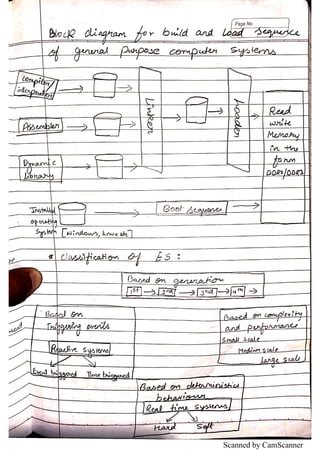 Page No.
Block diagram for build and load sequence
of general purpose computer systems
Compiler/
interpreter
Assembler
Dynamic
library
Linker
Loader
Read
write
Memory
in the
form
DDR1/DDR2
Installed
operating
System [Windows, Linux etc]
Boot sequence
* Classification of ES :
Based on generation
1st → 2nd → 3rd → 4th →
Based on
Triggering events
Reactive systems
Event triggered Time triggered
Based on complexity
and performance
Small scale
Medium scale
large scale
Based on deterministic
behaviour
Real time systems
Hard Soft
Scanned by CamScanner